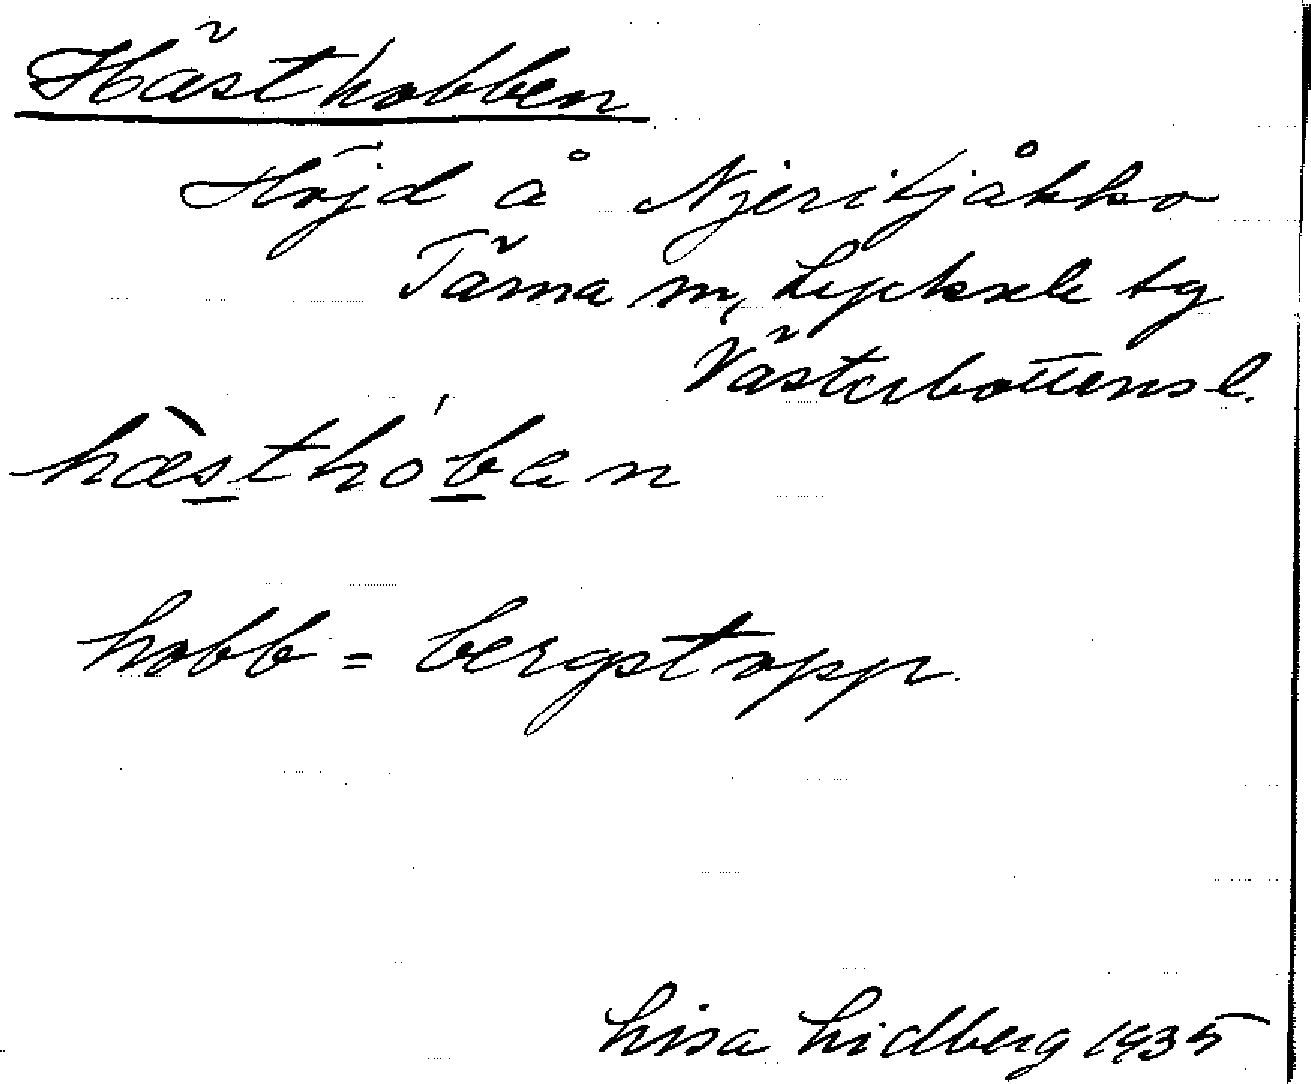 Hästhobben
Höjd å Njeritjåkko
Tärna sn, Lycksele tg
Västerbottens l.
hæ̀sthób̲an
hobb = bergstopp.
Lisa Lidberg 1935